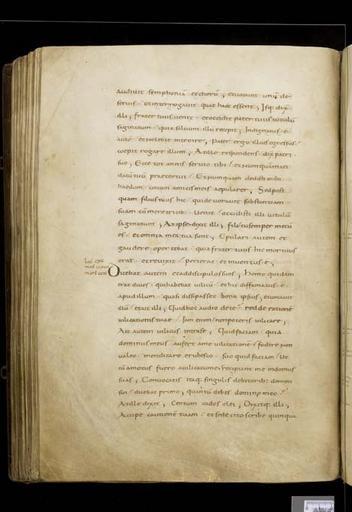 audiuit symphoniu et choru ; et uocauit unu de
seruis et interrogauit quae haec essent ; Isq; dix
illi ; frater tuus uenit et occidit pater tuus uitulu
saginatum quia saluum illu recepit ; Indignatus e
aute et nolebat introire ; pater ergo illius egressus
coepit rogare illum ; At ille respondens dix patri
suo ; Ecce tot annis seruio tibi et numquam man
datu tuu praeteriui et numquam dedisti mihi
haedum ut cum amicis meis aepularer ; Sed postqua
quam filius tuus hic qui deuorauit substantiam
suam cu meretricib; uenit occidisti illi uitulu
saginatum ; At ipse dixit illi ; fili tu semper mecu
es et omnia mea tua sunt ; Epulari autem et
gaudere oportebat quia frater tuus hic mortuus
erat et reuixit perierat et inuentus e ;
Dicebat autem et ad discipulos suos ; Homo quidam
erat diues qui habebat uilicu et hic diffamatus e
apud illum quasi dissipasset bona ipsius et uocauit
illu et ait illi ; Quid hoc audio de te redde ratione
uilicationis tuae Iam enim non poteris uilicare ;
Ait autem uilicus intra se ; Quid faciam quia
dominus meus aufert a me uilicatione fodere non
ualeo mendicare erubesco scio quid faciam ut
cu amotus fuero a uilicatione recipiant me in domos
suas ; Conuocatis itaq; singulis debitorib; domini
sui dicebat primo ; quantu debes domino meo
At ille dixit ; Centum cados olei ; Dixitq; illi ;
Accipe cautione tuam et sede cito scribe quinqua